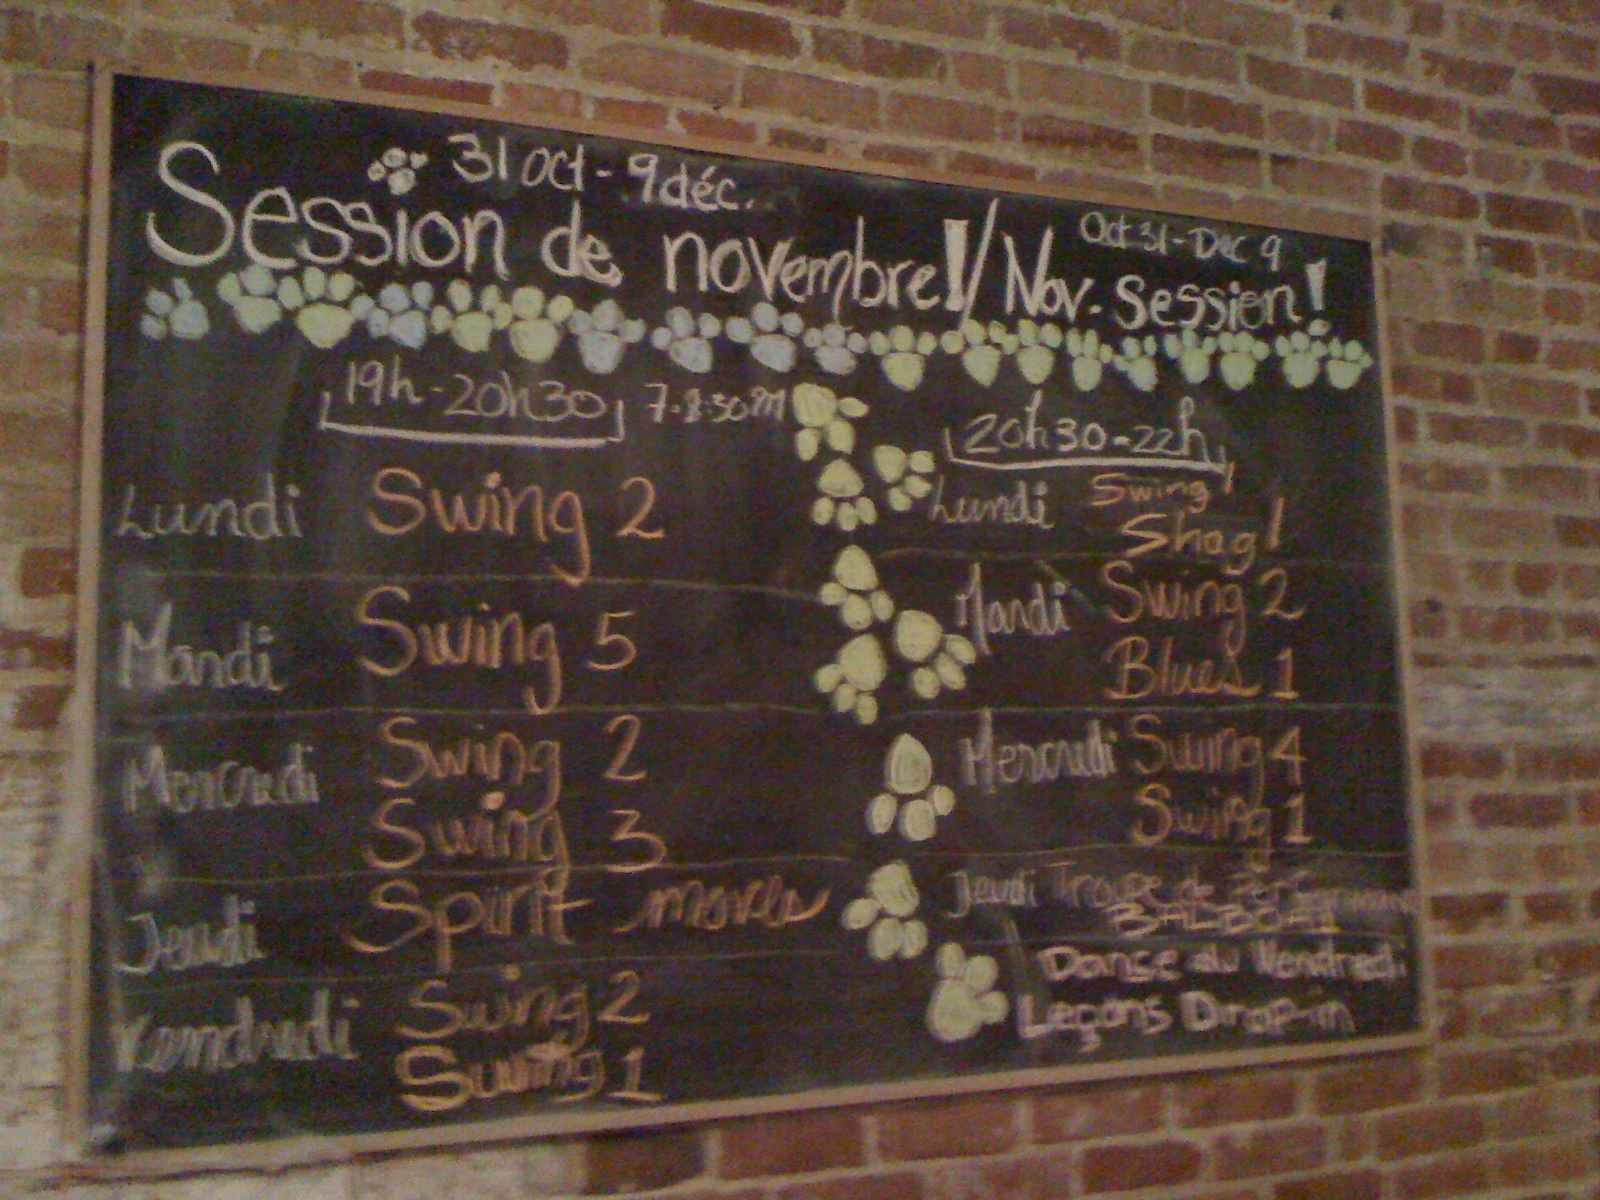 31 oct - 9 déc.
Session de novembre! / Nov. Session!
Oct 31 - Dec 9
19h - 20h30 7-8:30PM
Lundi Swing 2
Mardi Swing 5
Mercredi Swing 2
Swing 3
Jeudi Spirit moves
Vendredi Swing 2
Swing 1
20h30 - 22h
Lundi Swing 1
Shag 1
Mardi Swing 2
Blues 1
Mercredi Swing 4
Swing 1
Jeudi Troupe de Performance
BALBOA 1
Danse du Vendredi
Leçons Drop-in